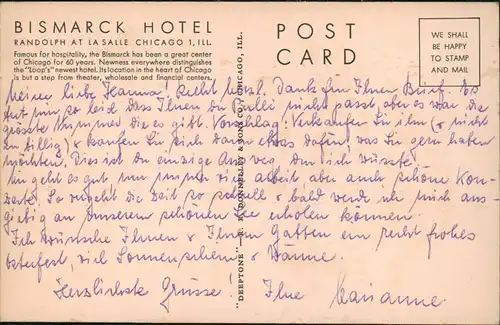 BISMARCK HOTEL
RANDOLPH AT LA SALLE CHICAGO 1, ILL.
Famous for hospitality, the Bismarck has been a great center
of Chicago for 60 years. Newness everywhere distinguishes
the "Loop's" newest hotel. Its location in the heart of Chicago
is but a step from theater, wholesale and financial centers.
POST
CARD
WE SHALL
BE HAPPY
TO STAMP
AND MAIL
Meine liebe Jeanna! Recht herzl. Dank für Ihren Brief. Es
tut mir so leid dass Ihnen der nicht passt, aber es war die
grösste Nummer die es gibt. Vorschlag: Verkaufen Sie ihn (nicht
zu billig) & kaufen Sie sich dann etwas dafür, was Sie gern haben
möchten. Dies ist der einzige Ausweg, den ich wüsste.
Mir geht es gut nur viel arbeit aber auch schöne Kon-
zerte. So vergeht die Zeit so schnell & bald werde ich mich aus-
giebig an unserem schönen See erholen können.
Ich wünsche Ihnen & Ihrem Gatten ein recht frohes
Osterfest, viel Sonnenschein & Wärme.
Herzlichste Grüsse! Ihre Marianne.
"DEEPTONE"—R. R. DONNELLEY & SONS CO., CHICAGO, ILL.